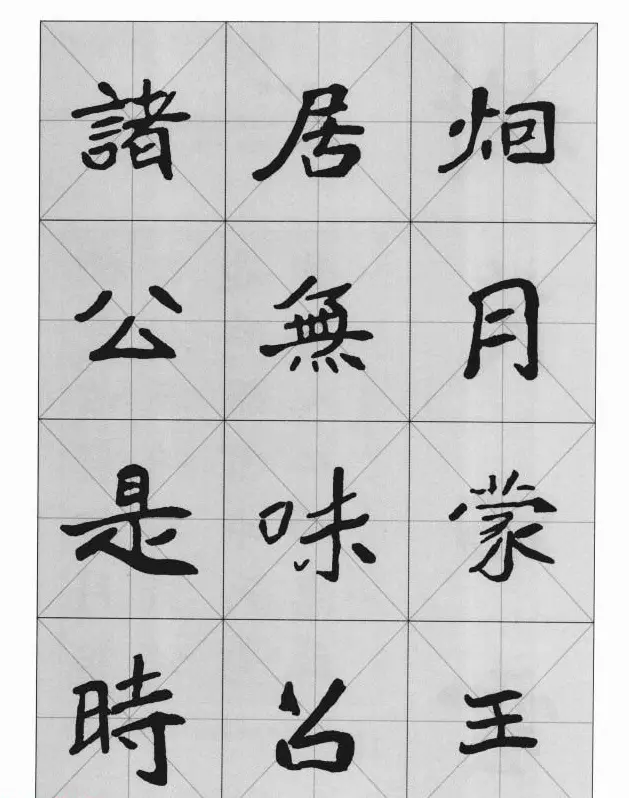 炯月蒙王
居無味
諸公是時